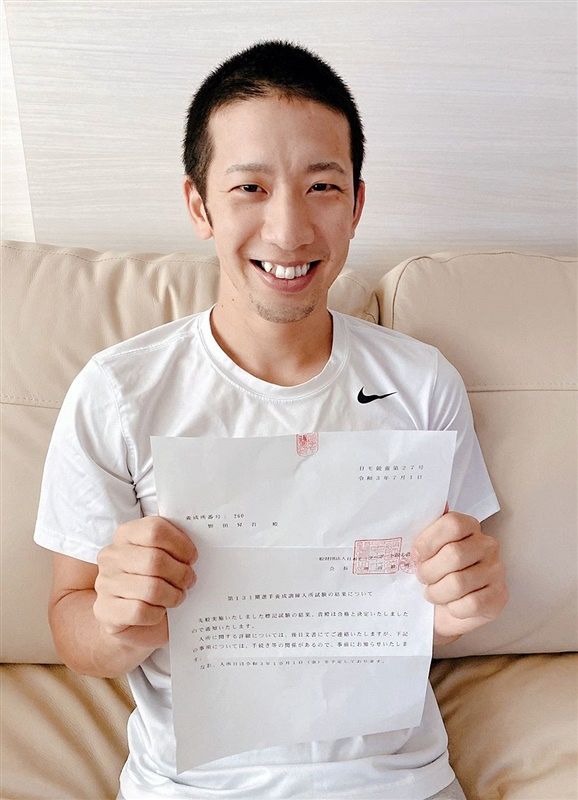 日モ競養第27号
令和3年7月1日
養成所番号: 260
野田昇吾 殿
一般財団法人日本モーターボート競走会
会長
第131期選手養成訓練入所試験の結果について
先般実施いたしました標記試験の結果、貴殿は合格と決定いたしました
ので通知いたします。
入所に関する詳細については、後日文書にてご連絡いたしますが、下記
の事前については、手続き等の関係があるので、事前にお知らせいたしま
す。
なお、入所日は令和3年10月1日(金)を予定しております。